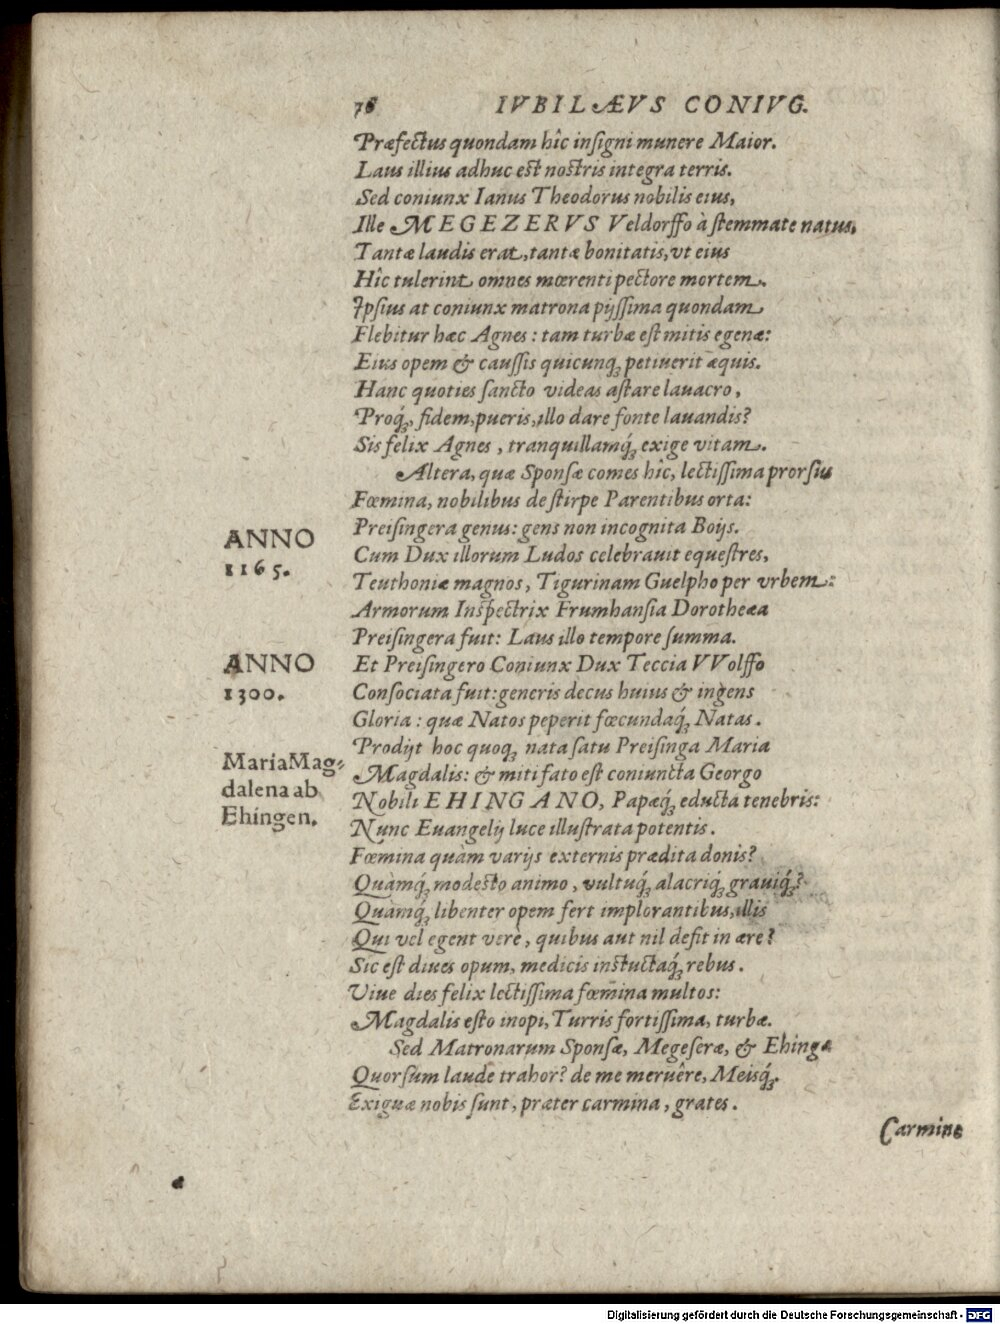 76 IVBILÆVS CONIVG.
Præfectus quondam hîc insigni munere Maior.
Laus illius adhuc est nostris integra terris.
Sed coniunx Ianus Theodorus nobilis eius,
Ille MEGEZERVS Veldorffo à stemmate natus,
Tantæ laudis erat, tantæ bonitatis, vt eius
Hîc tulerint omnes mœrenti pectore mortem.
Ipsius at coniunx matrona pijssima quondam
Flebitur hæc Agnes: tam turbæ est mitis egenæ:
Eius opem & caussis quicunq́; petiuerit æquis.
Hanc quoties sancto videas astare lauacro,
Proq́;, fidem, pueris, illo dare fonte lauandis?
Sis felix Agnes, tranquillamq́; exige vitam.
Altera, quæ Sponsæ comes hîc, lectissima prorsus
Fœmina, nobilibus de stirpe Parentibus orta:
Preisingera genus: gens non incognita Boijs.
ANNO
1165.
Cum Dux illorum Ludos celebrauit equestres,
Teuthoniæ magnos, Tigurinam Guelpho per vrbem:
Armorum Inspectrix Frumhansia Dorotheæa
Preisingera fuit: Laus illo tempore summa.
ANNO
1300.
Et Preisingero Coniunx Dux Teccia VVolffo
Consociata fuit: generis decus huius & ingens
Gloria: quæ Natos peperit fœcundaq́; Natas.
Maria Mag-
dalena ab
Ehingen.
Prodijt hoc quoq; nata satu Preisinga Maria
Magdalis: & miti fato est coniuncta Georgo
Nobili EHINGANO, Papæq́; educta tenebris:
Nunc Euangelij luce illustrata potentis.
Fœmina quàm varijs externis prædita donis?
Quàmq́; modesto animo, vultuq́; alacriq́; grauiq́;?
Quàmq́; libenter opem fert implorantibus, illis
Qui vel egent verè, quibus aut nil defit in ære?
Sic est diues opum, medicis instuctaq́; rebus.
Viue dies felix lectissima fœmina multos:
Magdalis esto inopi, Turris fortissima, turbæ.
Sed Matronarum Sponsæ, Megeseræ, & Ehingæ
Quorsum laude trahor? de me meruêre, Meisq́;.
Exiguæ nobis sunt, præter carmina, grates.
Carmine
Digitalisierung gefördert durch die Deutsche Forschungsgemeinschaft - DFG